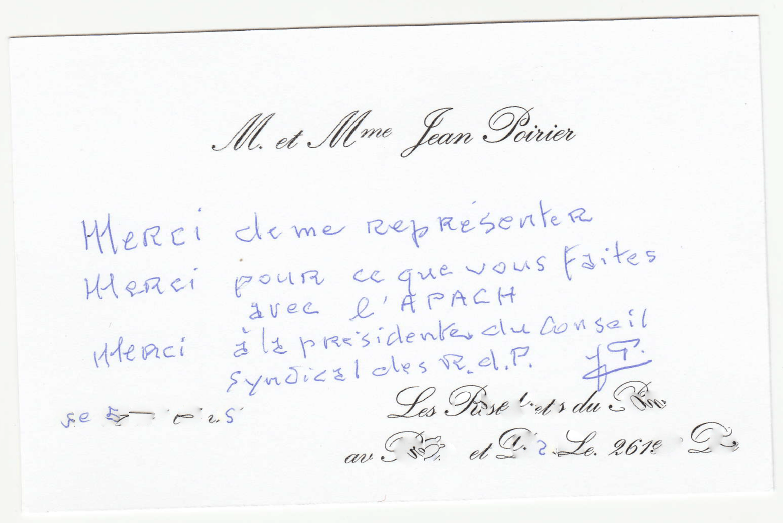 M. et Mme Jean Poirier
Merci de me représenter
Merci pour ce que vous faites
avec l'APACH
Merci à la présidente du Conseil
syndical des R.d.P. JP.
Les du
av et Le.